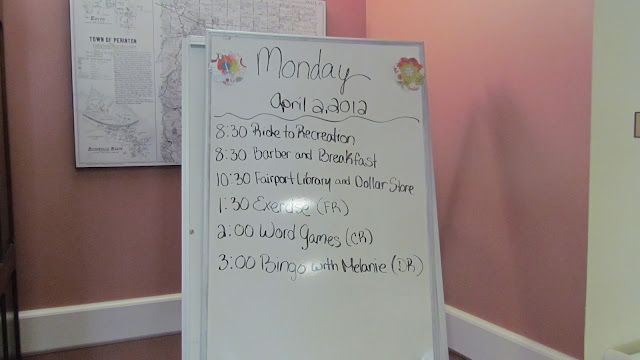 TOWN OF PERINTON
Monday
April 2, 2012
8:30 Ride to Recreation
8:30 Barber and Breakfast
10:30 Fairport Library and Dollar Store
1:30 Exercise (FR)
2:00 Word Games (CR)
3:00 Bingo with Melanie (DR)